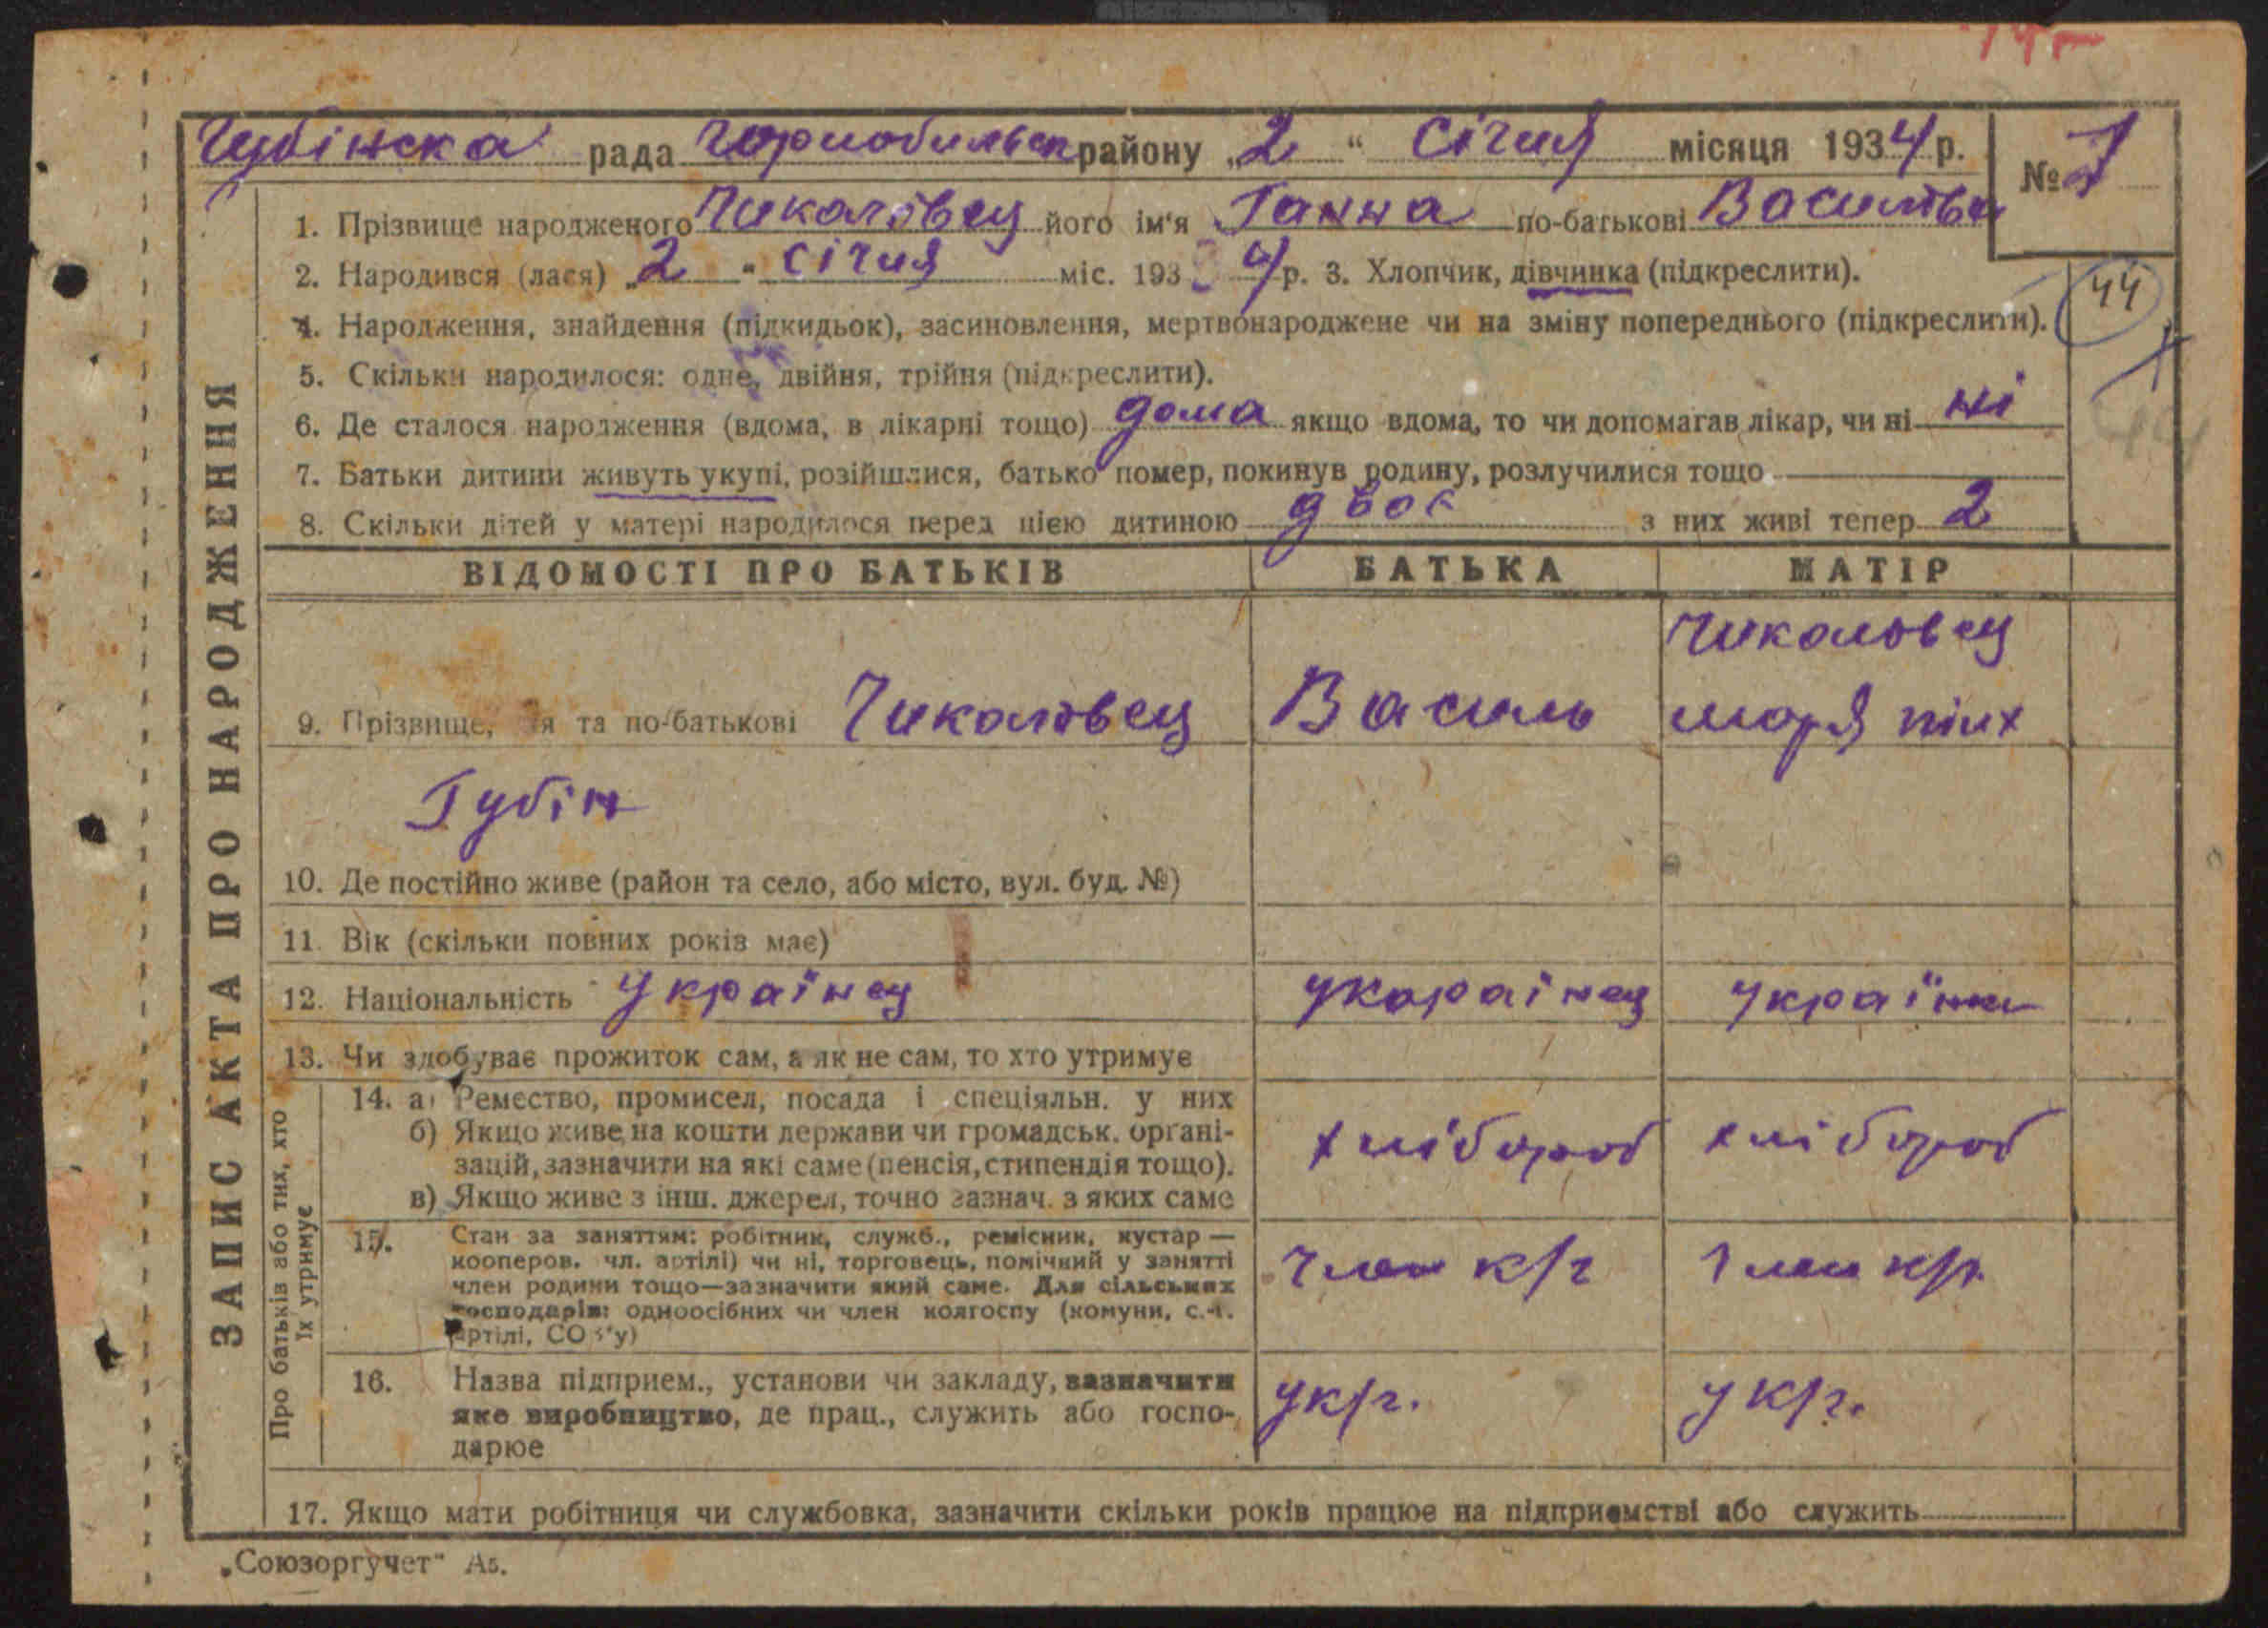 Губінска рада Чорнобильск району „2“ Січня місяця 1934 р.
№ 1
1. Прізвище народженого Чикаловец його ім'я Ганна по-батькові Василівн
2. Народився (лася) „2“ січня міс. 1934 р. 3. Хлопчик, дівчинка (підкреслити).
44
4. Народження, знайдення (підкидьок), засиновлення, мертвонароджене чи на зміну попереднього (підкреслити).
5. Скільки народилося: одне, двійня, трійня (підкреслити).
6. Де сталося народження (вдома, в лікарні тощо) дома якщо вдома, то чи допомагав лікар, чи ні ні
44
7. Батьки дитини живуть укупі, розійшлися, батько помер, покинув родину, розлучилися тощо
8. Скільки дітей у матері народилося перед цією дитиною двое з них живі тепер 2
ЗАПИС АКТА ПРО НАРОДЖЕННЯ
ВІДОМОСТІ ПРО БАТЬКІВ БАТЬКА МАТІР
Чикаловец
9. Прізвище, я та по-батькові Чикаловец Василь
Губін
10. Де постійно живе (район та село, або місто, вул. буд. №)
11. Вік (скільки повних років має)
12. Національність Українец україінец українка
13. Чи здобуває прожиток сам, а як не сам, то хто утримує
Про батьків або тих, хто
їх утримує
14. а) Ремество, промисел, посада і спеціяльн. у них
б) Якщо живе на кошти держави чи громадськ. органі-
зацій, зазначити на які саме (пенсія, стипендія тощо).
в) Якщо живе з інш. джерел, точно зазнач. з яких саме
хлібороб хлібороб
15. Стан за заняттям: робітник, служб., ремісник, кустар —
кооперов. чл. артілі) чи ні, торговець, помічний у занятті
член родини тощо—зазначити який саме. Для сільських
господарів: одноосібних чи член колгоспу (комуни, с.-г.
артілі, СОЗ'у)
член к/г член к/г.
16. Назва підприєм., установи чи закладу, зазначити
яке виробництво, де прац., служить або госпо-
дарює
у к/г. у к/г.
17. Якщо мати робітниця чи службовка, зазначити скільки років працює на підприємстві або служить
„Союзоргучет“ А5.